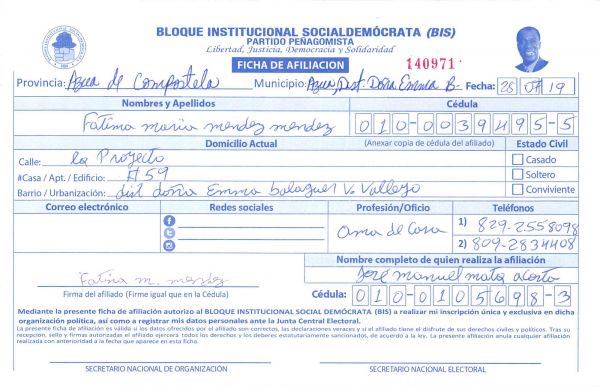 BLOQUE INSTITUCIONAL SOCIALDEMÓCRATA (BIS)
PARTIDO PEÑAGOMISTA
Libertad, Justicia, Democracia y Solidaridad
FICHA DE AFILIACION
140971
Provincia: Azua de Compostela Municipio: Azua, Dist. Doña Emma B. Fecha: 19
Nombres y Apellidos Cédula
Fatima maria mendez mendez 010-0039495-5
Domicilio Actual (Anexar copia de cédula del afiliado) Estado Civil
Calle: la Proyecto Casado
#Casa / Apt. / Edificio: #59 Soltero
Barrio / Urbanización: dist doña Emma balaguer V. Vallejo Conviviente
Correo electrónico Redes sociales Profesión/Oficio Teléfonos
Ama de Casa 1) 829-2558098
2) 809-2834408
Nombre completo de quien realiza la afiliación
Fatima m. mendez José manuel mata
Firma del afiliado (Firme igual que en la Cédula) Cédula: 010-0105698-3
Mediante la presente ficha de afiliación autorizo al BLOQUE INSTITUCIONAL SOCIAL DEMÓCRATA (BIS) a realizar mi inscripción única y exclusiva en dicha
organización política, así como a registrar mis datos personales ante la Junta Central Electoral.
La presente ficha de afiliación es válida si los datos ofrecidos por el afiliado son correctos, las declaraciones veraces y si el afiliado tiene el disfrute de sus derechos civiles y políticos. Tras su
recepción, sello y firmas autorizadas el afiliado ejercerá todos los derechos y los deberes estatutariamente sancionados, de acuerdo a la ley. La presente afiliación anula cualquier afiliación
realizada con anterioridad a la fecha que aparece en esta ficha.
SECRETARIO NACIONAL DE ORGANIZACIÓN SECRETARIO NACIONAL ELECTORAL